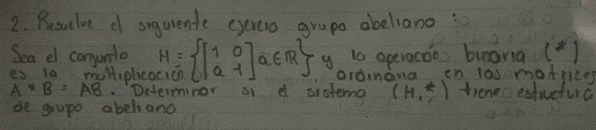 2. Resuelve el siguiente ejercicio grupo abeliano:
Sea el conjunto H = {[1 0 a 1] a ∈ ℝ} y la operación binaria (*)
es la multiplicación ordinaria en las matrices
A * B = AB. Determinar si el sistema (H, *) tiene estructura
de grupo abeliano